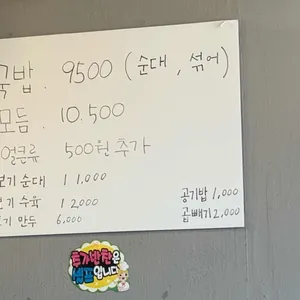 국밥. 9500 (순대, 섞어)
모듬. 10,500
얼큰류 500원 추가
보기 순대 11,000
보기 수육 12000
보기 만두 6,000
공기밥 1,000
곱빼기 2,000
추가반찬은
셀프입니다